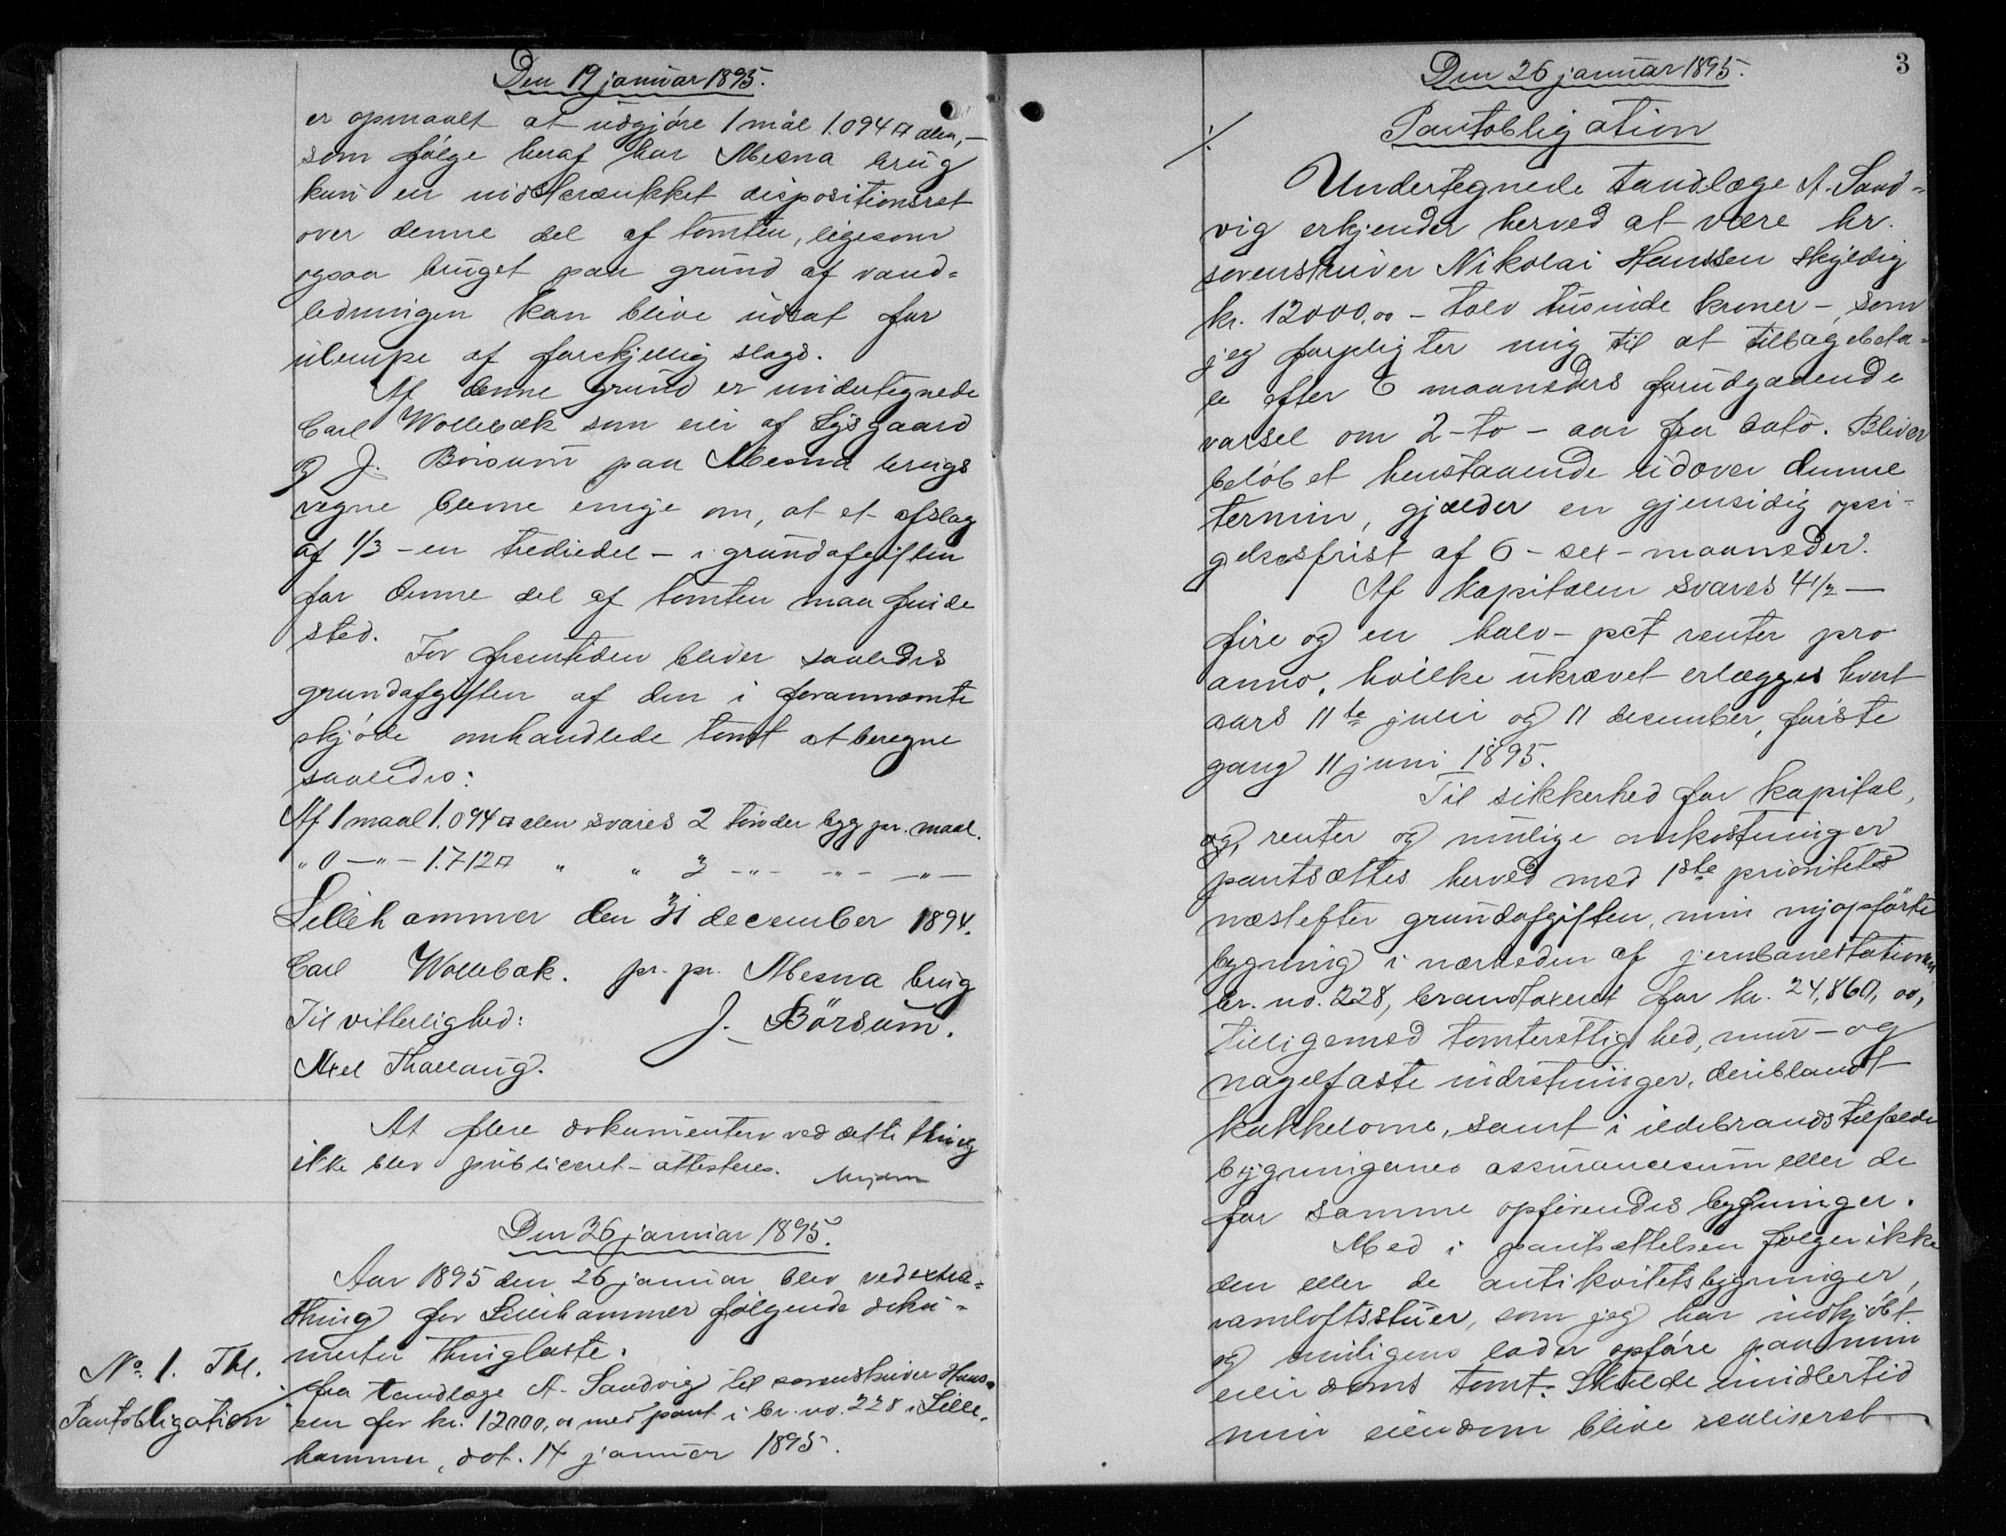 Den 19 januar 1895.
er opmaalt at udgjøre 1 mål 1.094 □ alen, —
som følge heraf har Mesna brug
kun en indskrænket dispositionsret
over denne del af tomten, ligesom
ogsaa bruget paa grund af vand-
ledningen kan blive udsat for
ulempe af forskjellig slags.
Af denne grund er undertegnede
Carl Wollebæk som eier af Lysgaard
og J. Börsum paa Mesna brugs
vegne blevne enige om, at et afslag
af 1/3 - en trediedel - i grundafgiften
for denne del af tomten maa finde
sted.
For fremtiden bliver saaledes
grundafgiften af den i forannævnte
skjøde omhandlede tomt at beregne
saaledes:
Af 1 maal 1.094 □ alen svares 2 tønder byg pr. maal.
" 0 —"— 1.712 □ " " 3 —"— —"— —"—
Lillehammer den 31 december 1894.
Carl Wollebæk. pr. pr. Mesna brug
Til vitterlighed: J. Börsum.
Axel Thallaug.
At flere dokumenter ved dette thing
ikke blev publiceret - attesteres.
Den 26 januar 1895.
Aar 1895 den 26 januar blev ved extra-
thing for Lillehammer følgende doku-
menter thinglæste.
No. 1. Thl.
Pantobligation
fra tandlæge A. Sandvig til sorenskriver Hans-
sen for kr. 12000,00 med pant i br. no. 228 i Lille-
hammer, dat. 14 januar 1895.
3
Den 26 januar 1895.
./.
Pantobligation
Undertegnede tandlæge A. Sand-
vig erkjender herved at være hr.
sorenskriver Nikolai Hanssen skyldig
kr. 12000,00 - tolv tusinde kroner -, som
jeg forpligter mig til at tilbagebeta-
le efter 6 maaneders forudgaaende
varsel om 2 - to - aar fra dato. Bliver
beløbet henstaaende udover denne
termin, gjælder en gjensidig opsi-
gelsesfrist af 6 - sex - maaneder.
Af kapitalen svares 4 1/2 —
fire og en halv - pct renter pro
anno, hvilke ukrævet erlægges hvert
aars 11te juni og 11 desember, første
gang 11 juni 1895.
Til sikkerhed for kapital,
og, renter og mulige omkostninger
pantsættes herved med 1ste prioritets
næstefter grundafgiften, min nyopførte
bygning i nærheden af jernbanestationen,
br. no. 228, brandtaxeret for kr. 24,860,00,
tilligemed tomterettighed, mur- og
nagelfaste indretninger, deriblandt
kakkelovne, samt i ildebrandstilfælde
bygningernes assurancesum eller de
for samme opførendes bygninger.
Med i pantsættelsen følger ikke
den eller de antikvitetsbygninger,
ramloftsstuer, som jeg har indkjøbt
og muligens lader opføre paa min
eiendoms tomt. Skulde imidlertid
min eiendom blive realiseret